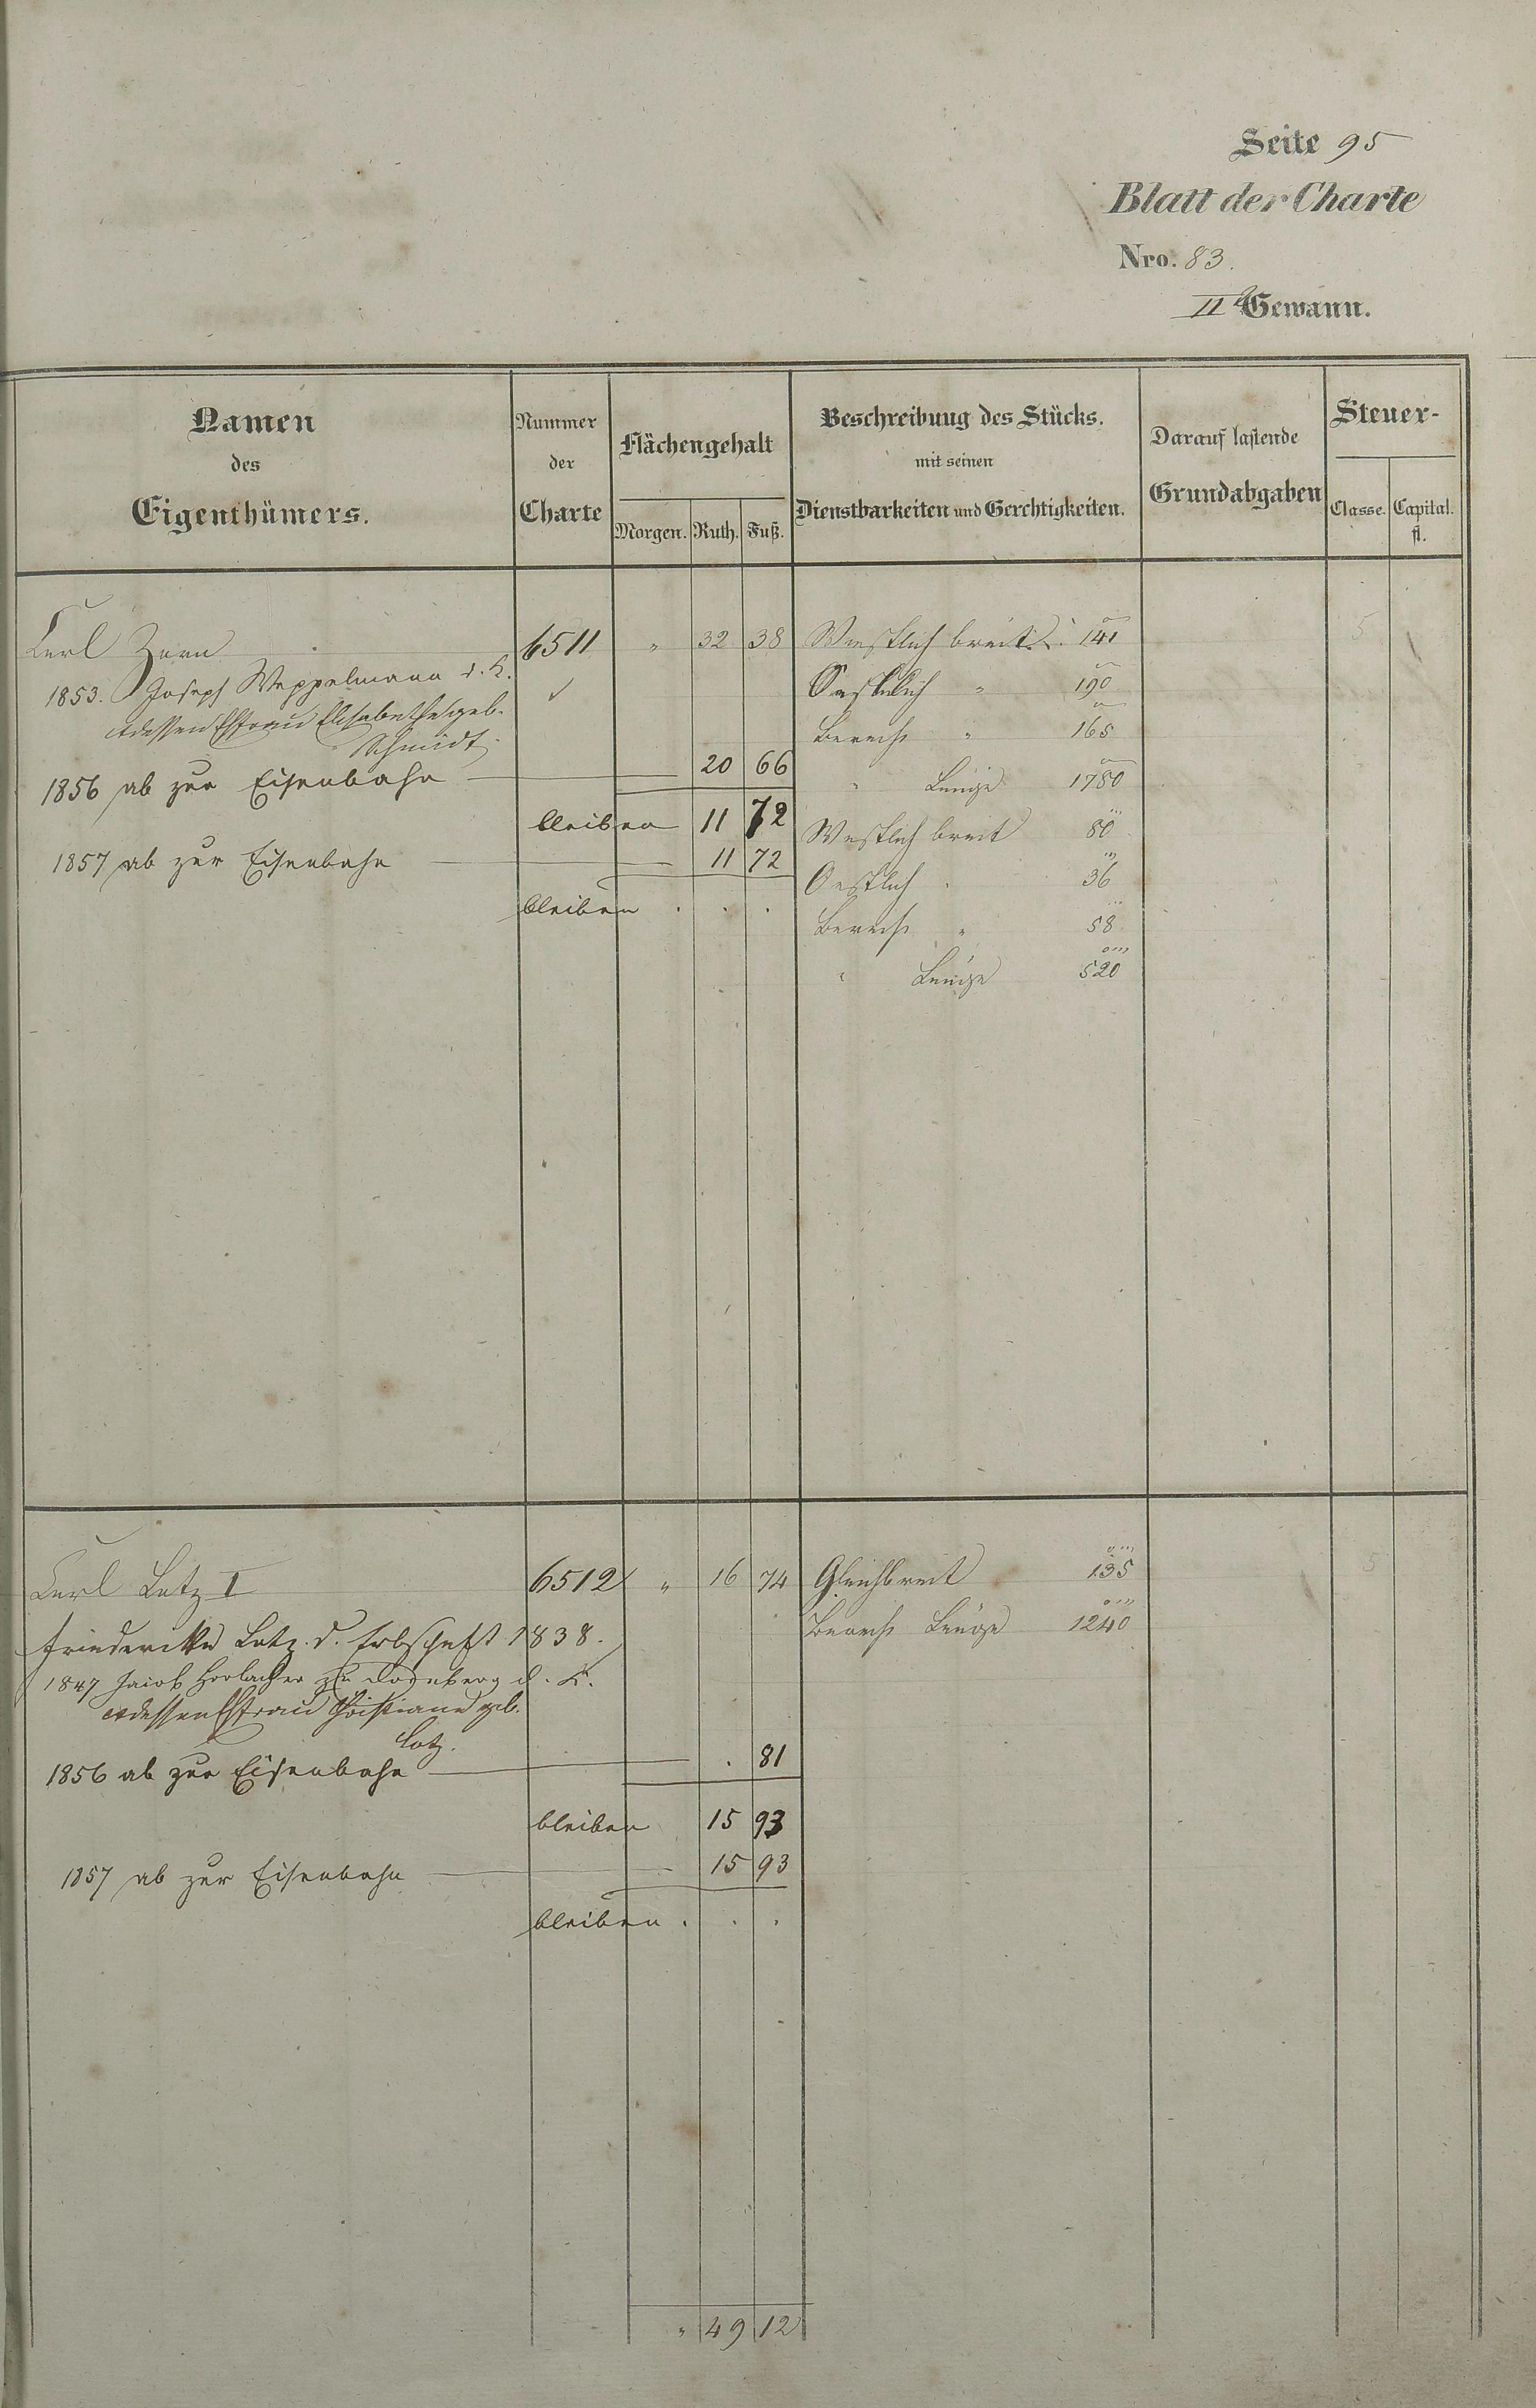 Seite 95
Blatt der Charte
Nro. 83.
II Gewann.
Namen des Eigenthümers.
Nummer der Charte
Flächengehalt
Morgen. Ruth. Fuß.
Beschreibung des Stücks. mit seinen Dienstbarkeiten und Gerechtigkeiten.
Darauf lastende Grundabgaben
Steuer-
Classe. Capital. fl.
Carl Zorn 6511 " 32 38 Westlich breit 141 5
1853. Joseph Weppelmann d. K. Oestlich " 190
u dessen Ehefrau Elisabetha geb. Berech " 165
Schmidt
1856 ab zur Eisenbahn — 20 66 " Länge 1780
bleiben 11 72 Westlich breit 80
1857 ab zur Eisenbahn — 11 72 Oestlich 36
bleiben . . . Berech " 58
" Länge 520
Carl Lotz I 6512 " 16 74 Gleichbreit 135 5
Friedericke Lotz d. Erbschaft 1838. Berech Länge 1240
1847 Jacob Horlacher zu d. K.
u dessen Ehefrau Christiane geb.
Lotz.
1856 ab zur Eisenbahn — . 81
bleiben 15 93
1857 ab zur Eisenbahn — 15 93
bleiben . . .
" 49 12